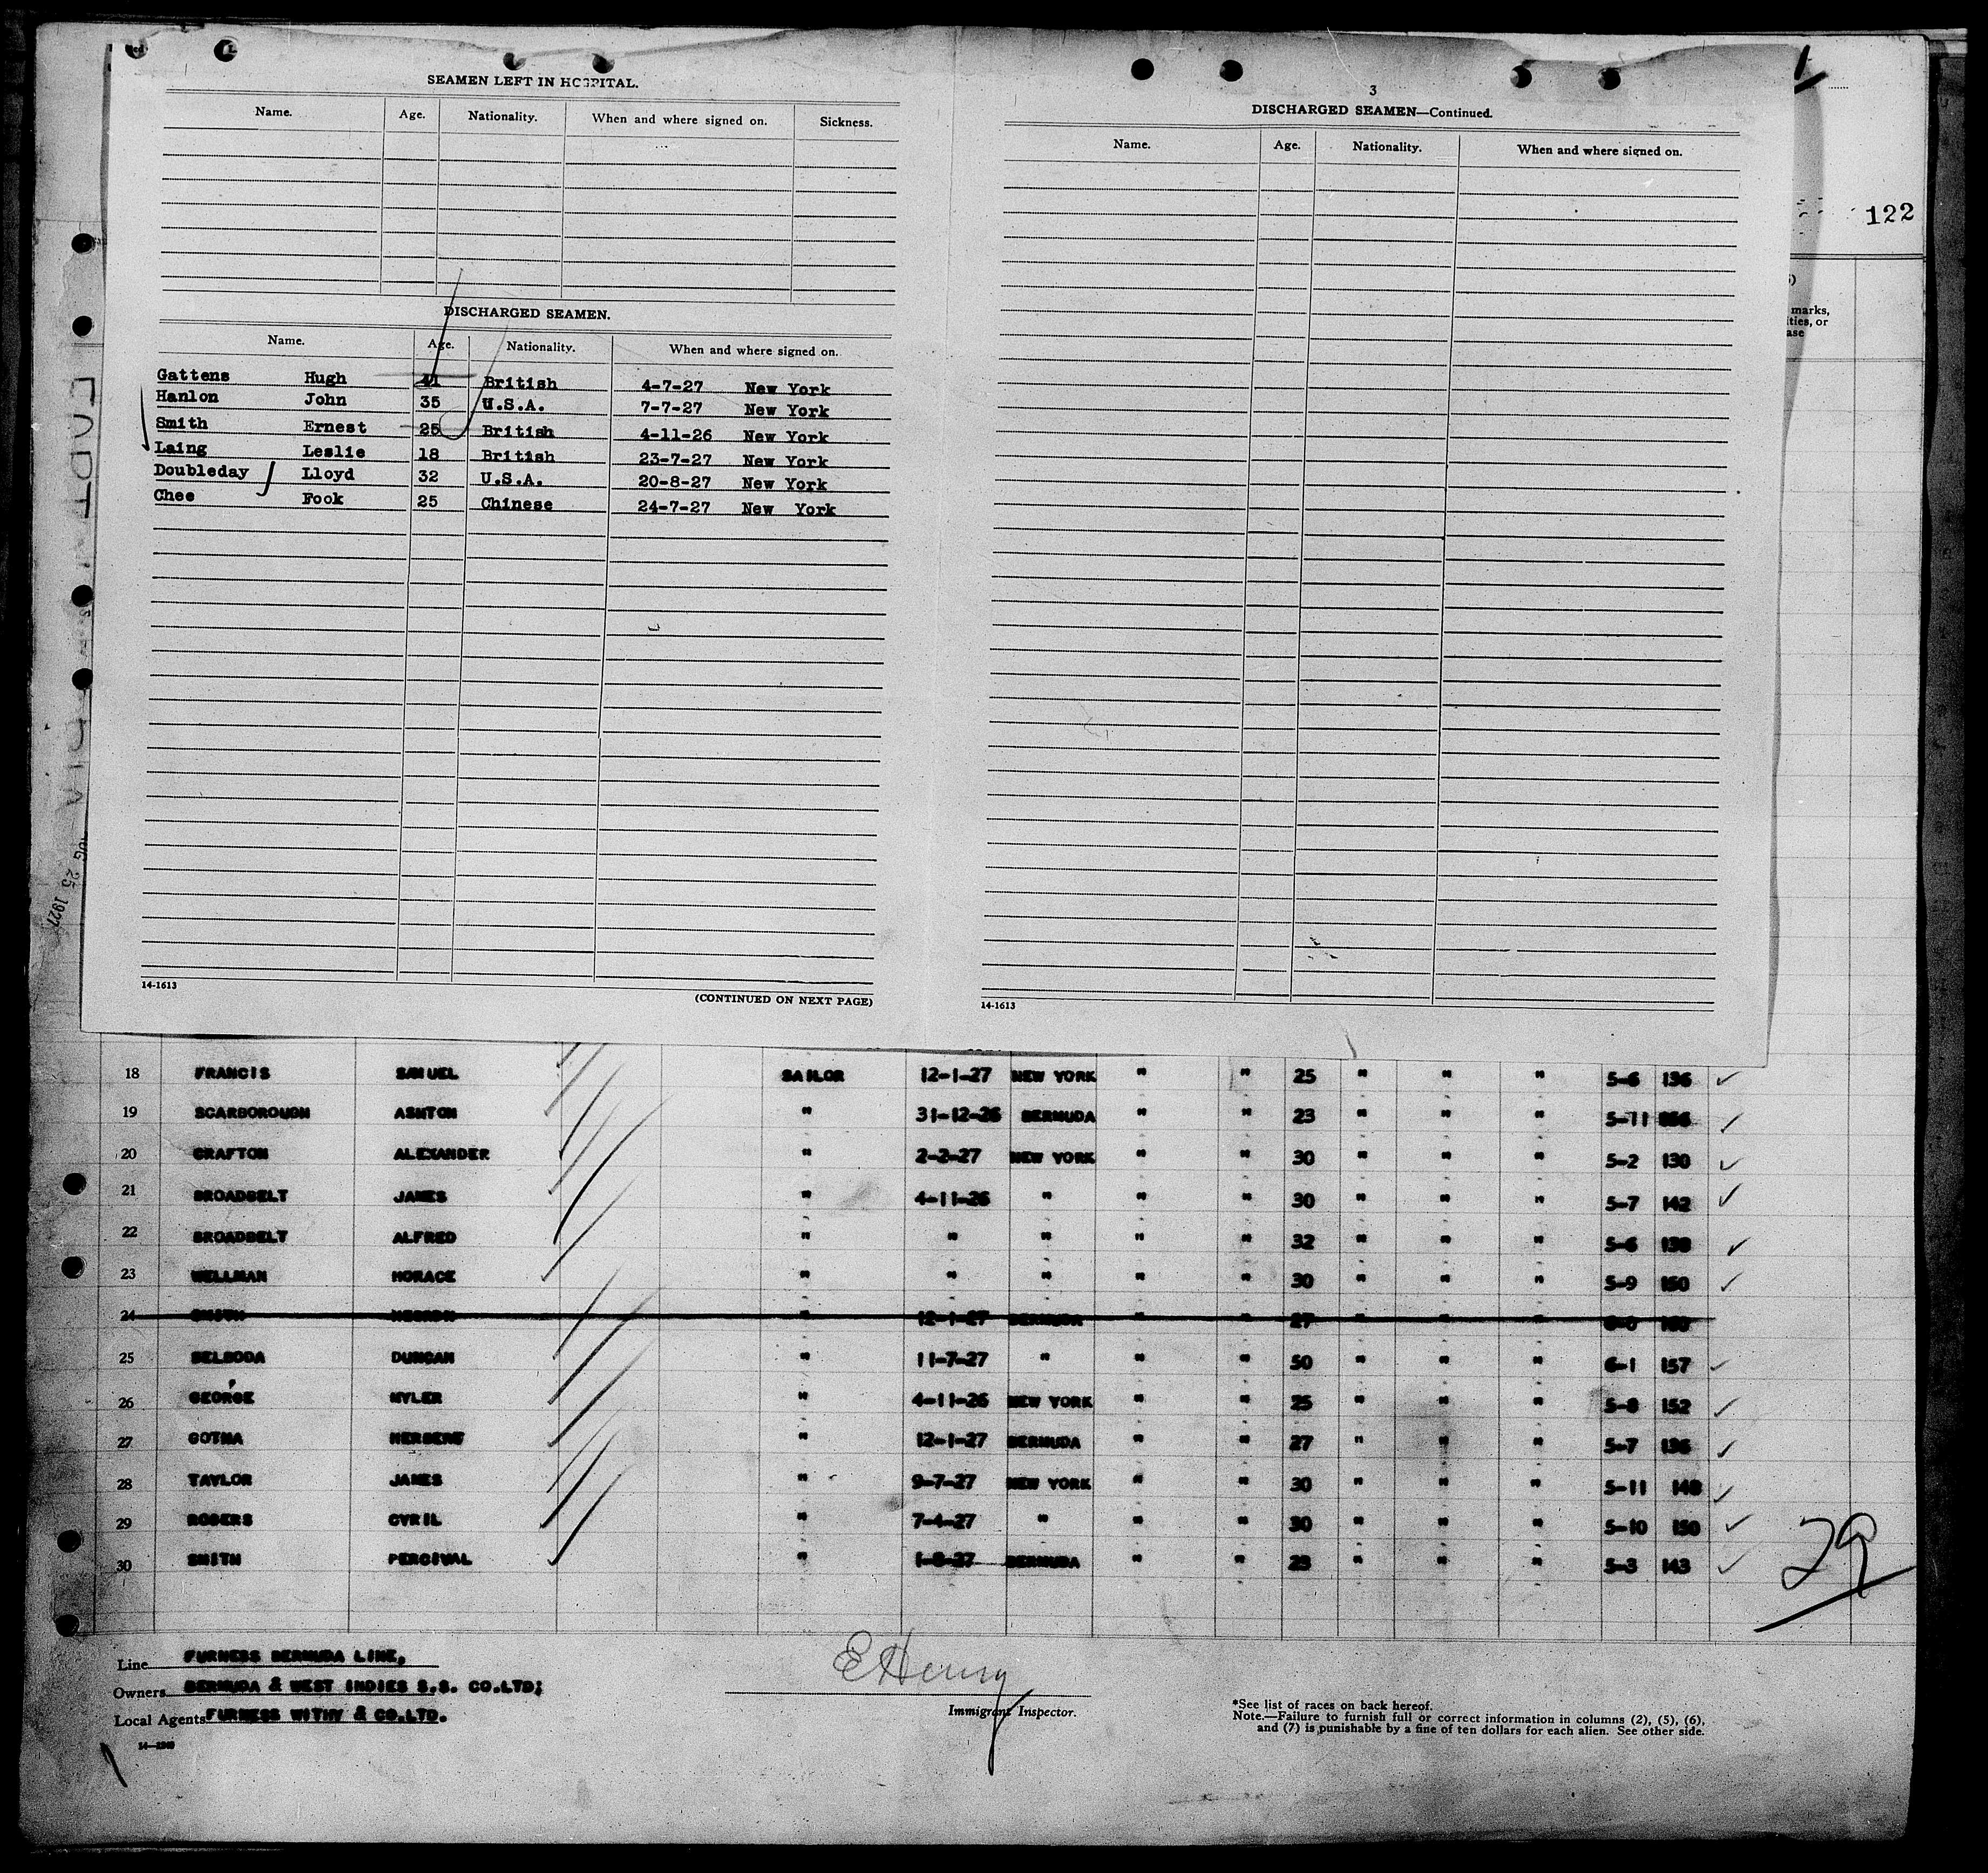 SEAMEN LEFT IN HOSPITAL.
Name. Age. Nationality. When and where signed on. Sickness.
DISCHARGED SEAMEN.
Name. Age. Nationality. When and where signed on.
Gattens Hugh 41 British 4-7-27 New York
Hanlon John 35 U.S.A. 7-7-27 New York
Smith Ernest 25 British 4-11-26 New York
Laing Leslie 18 British 23-7-27 New York
Doubleday Lloyd 32 U.S.A. 20-8-27 New York
Chee Fook 25 Chinese 24-7-27 New York
14-1613
(CONTINUED ON NEXT PAGE)
3
DISCHARGED SEAMEN—Continued.
Name. Age. Nationality. When and where signed on.
14-1613
122
marks,
ities, or
ase
25 1927
18 FRANCIS SAMUEL SAILOR 12-1-27 NEW YORK " " 25 " " " 5-6 136
19 SCARBOROUGH ASHTON " 31-12-26 BERMUDA " " 23 " " " 5-11
20 GRAFTON ALEXANDER " 2-2-27 NEW YORK " " 30 " " " 5-2 130
21 BROADBELT JAMES " 4-11-26 " " " 30 " " " 5-7 142
22 BROADBELT ALFRED " " " " " 32 " " " 5-6 138
23 WELLMAN HORACE " " " " " 30 " " " 5-9 150
24 SMITH " 12-1-27 BERMUDA " " 27 " " "
25 BELBODA DUNCAN " 11-7-27 " " " 50 " " " 6-1 157
26 GEORGE MYLER " 4-11-26 NEW YORK " " 25 " " " 5-8 152
27 GOTHA HERBERT " 12-1-27 BERMUDA " " 27 " " " 5-7 136
28 TAYLOR JAMES " 9-7-27 NEW YORK " " 30 " " " 5-11 148
29 ROGERS CYRIL " 7-4-27 " " " 30 " " " 5-10 150
30 SMITH PERCIVAL " 1-8-27 BERMUDA " " 23 " " " 5-3 143
29
Line FURNESS BERMUDA LINE,
Owners BERMUDA & WEST INDIES S.S. CO.LTD;
Local Agents FURNESS WITHY & CO.LTD.
E Henry
Immigrant Inspector.
*See list of races on back hereof.
Note.—Failure to furnish full or correct information in columns (2), (5), (6),
and (7) is punishable by a fine of ten dollars for each alien. See other side.